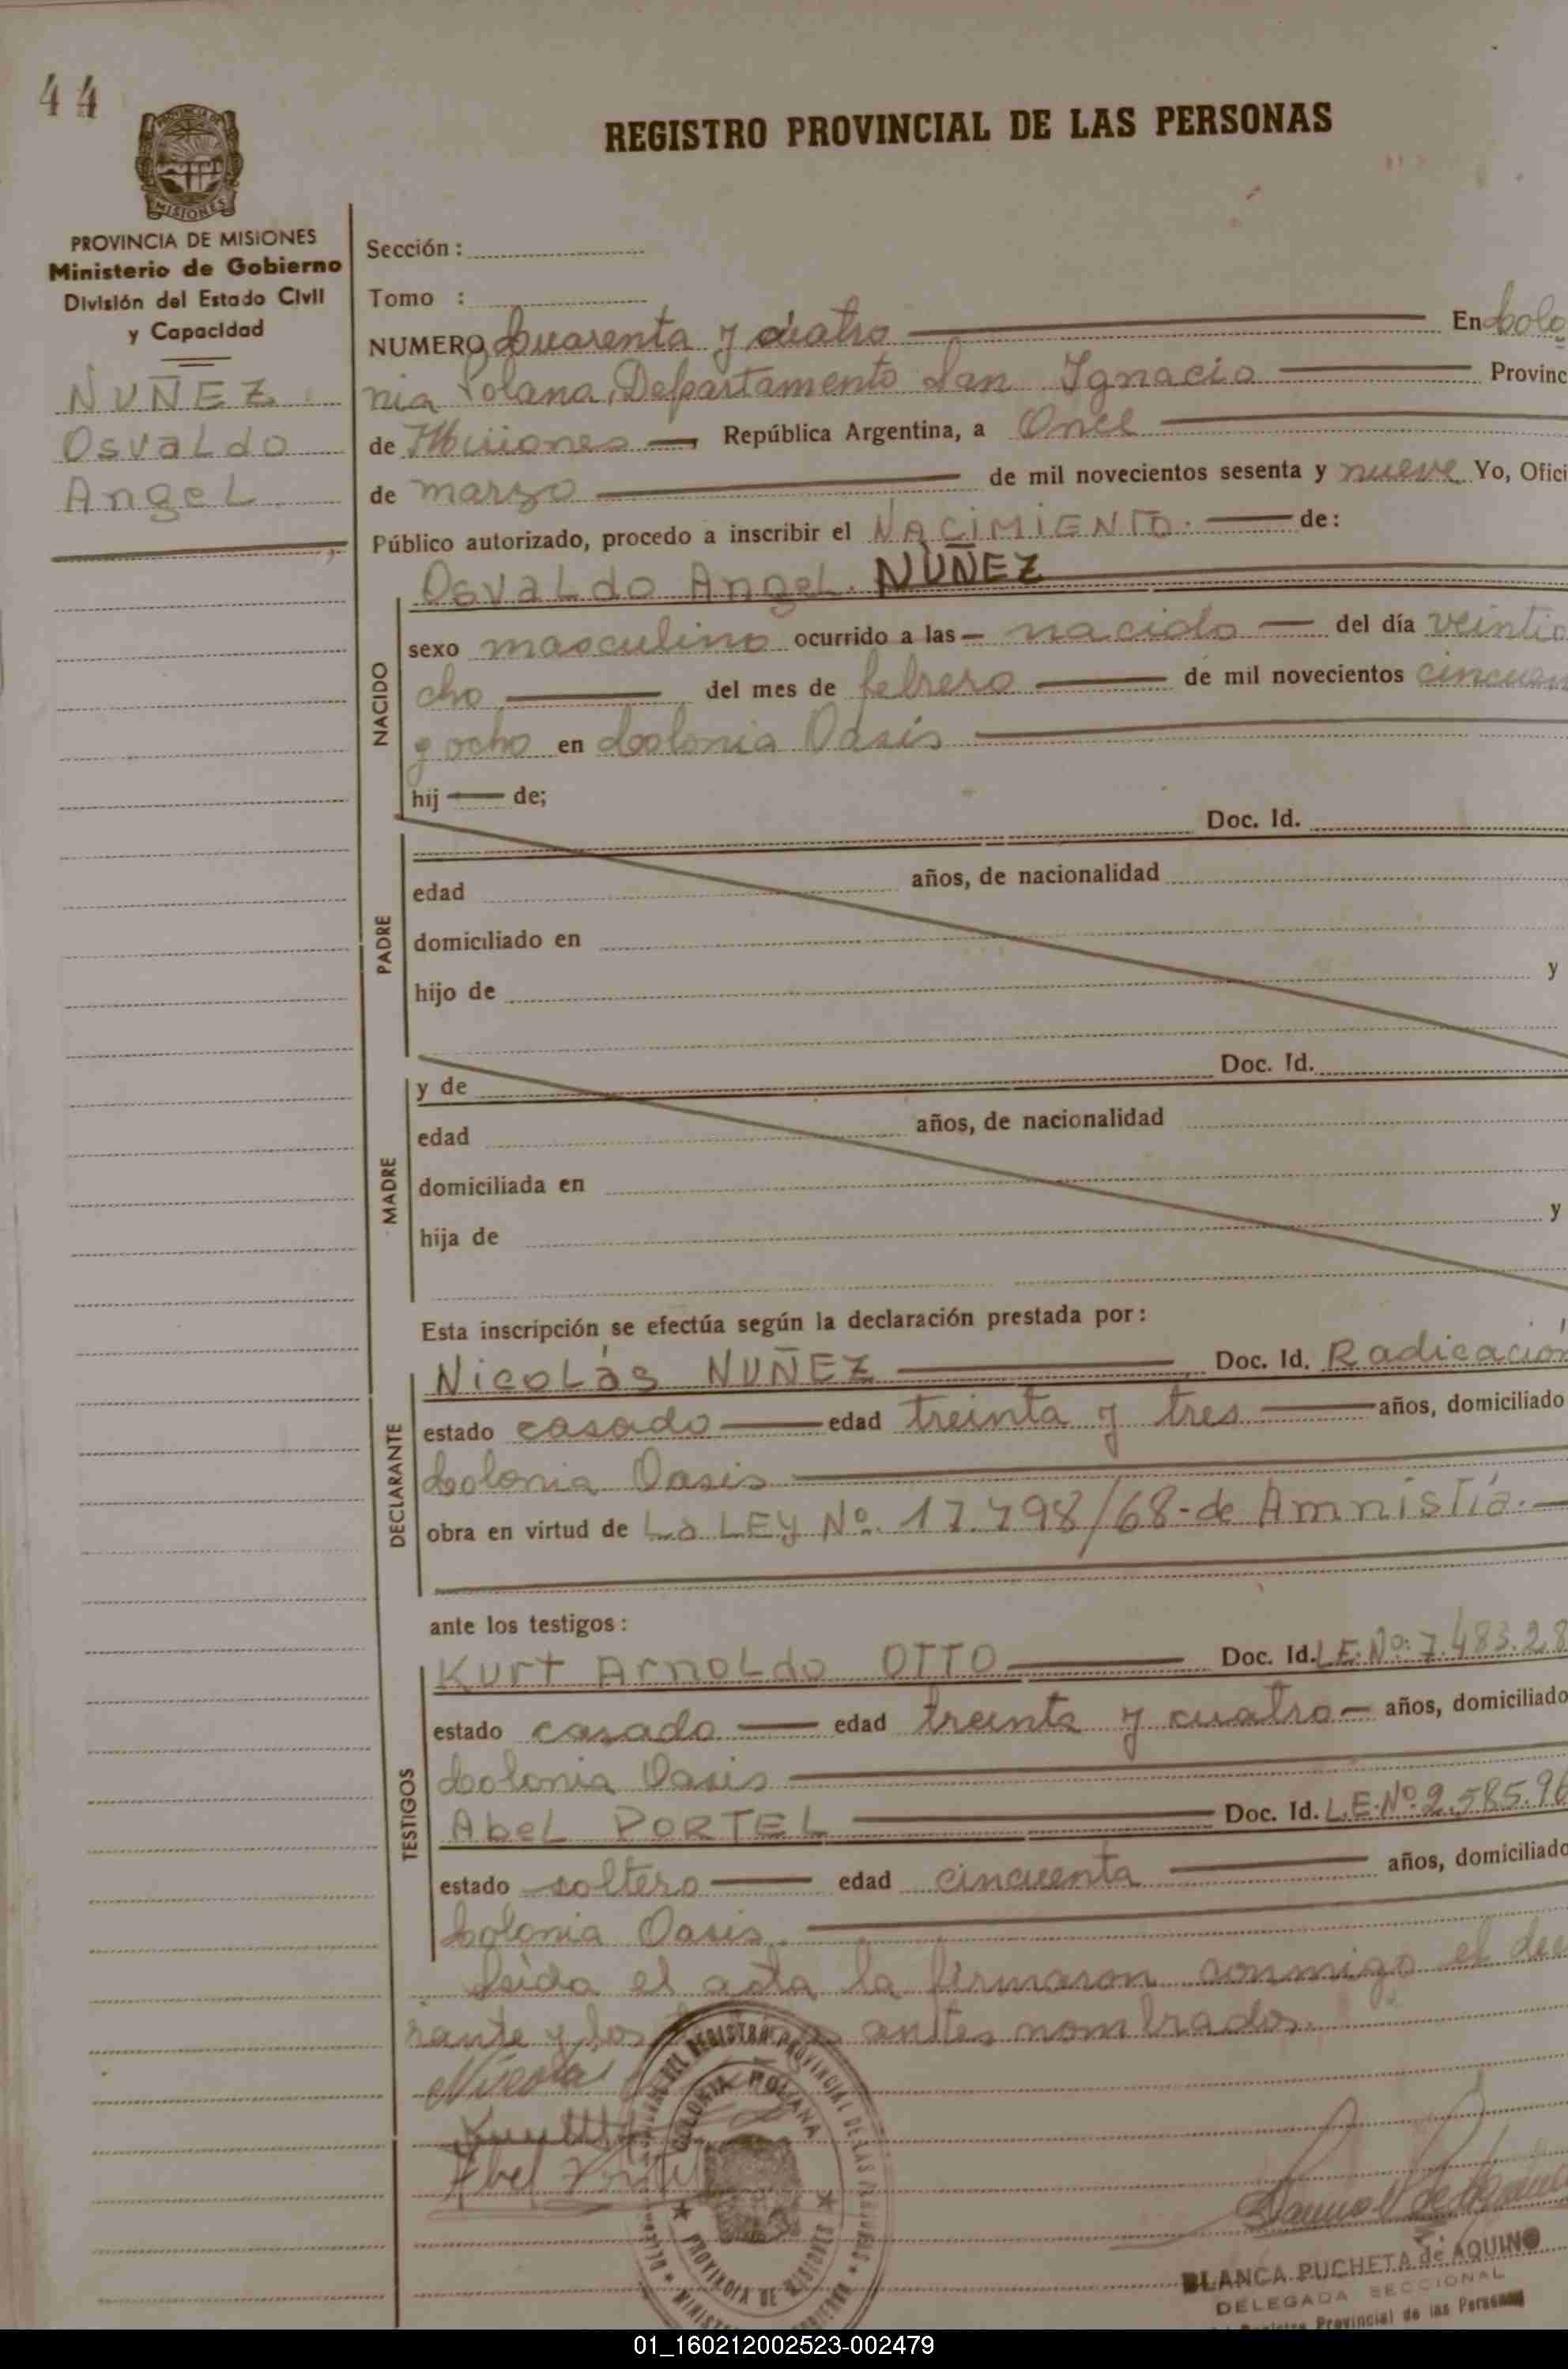 44
REGISTRO PROVINCIAL DE LAS PERSONAS
MISIONES
PROVINCIA DE MISIONES
Ministerio de Gobierno
División del Estado Civil
y Capacidad
NUÑEZ
Osvaldo
Angel
Sección :
Tomo :
NUMERO Cuarenta y cuatro En Colo
nia Polana, Departamento San Ignacio Provinc
de Misiones República Argentina, a Once
de marzo de mil novecientos sesenta y nueve Yo, Ofici
Público autorizado, procedo a inscribir el NACIMIENTO. de:
NACIDO
Osvaldo Angel. NUÑEZ
sexo masculino ocurrido a las — nacido — del día veintio
cho del mes de febrero de mil novecientos cincuen
y ocho en Colonia Oasis
hij — de;
PADRE
Doc. Id.
edad años, de nacionalidad
domiciliado en
hijo de y
MADRE
y de Doc. Id.
edad años, de nacionalidad
domiciliada en
hija de y
Esta inscripción se efectúa según la declaración prestada por :
DECLARANTE
Nicolás NUÑEZ Doc. Id. Radicación
estado casado edad treinta y tres años, domiciliado
Colonia Oasis
obra en virtud de La LEY Nº. 17.798/68-de Amnistía.-
ante los testigos :
TESTIGOS
Kurt Arnoldo OTTO Doc. Id. L.E.Nº: 7.483.28
estado casado edad treinta y cuatro años, domiciliado
Colonia Oasis
Abel PORTEL Doc. Id. L.E.Nº 2.585.96
estado soltero edad cincuenta años, domiciliado
Colonia Oasis.
Leida el acta la firmaron conmigo el dec
rante y los antes nombrados.
Nicolas
Abel
COLONIA POLANA
PROVINCIA DE MISIONES
BLANCA PUCHETA de AQUINO
DELEGADA SECCIONAL
Registro Provincial de las Personas
01_160212002523-002479